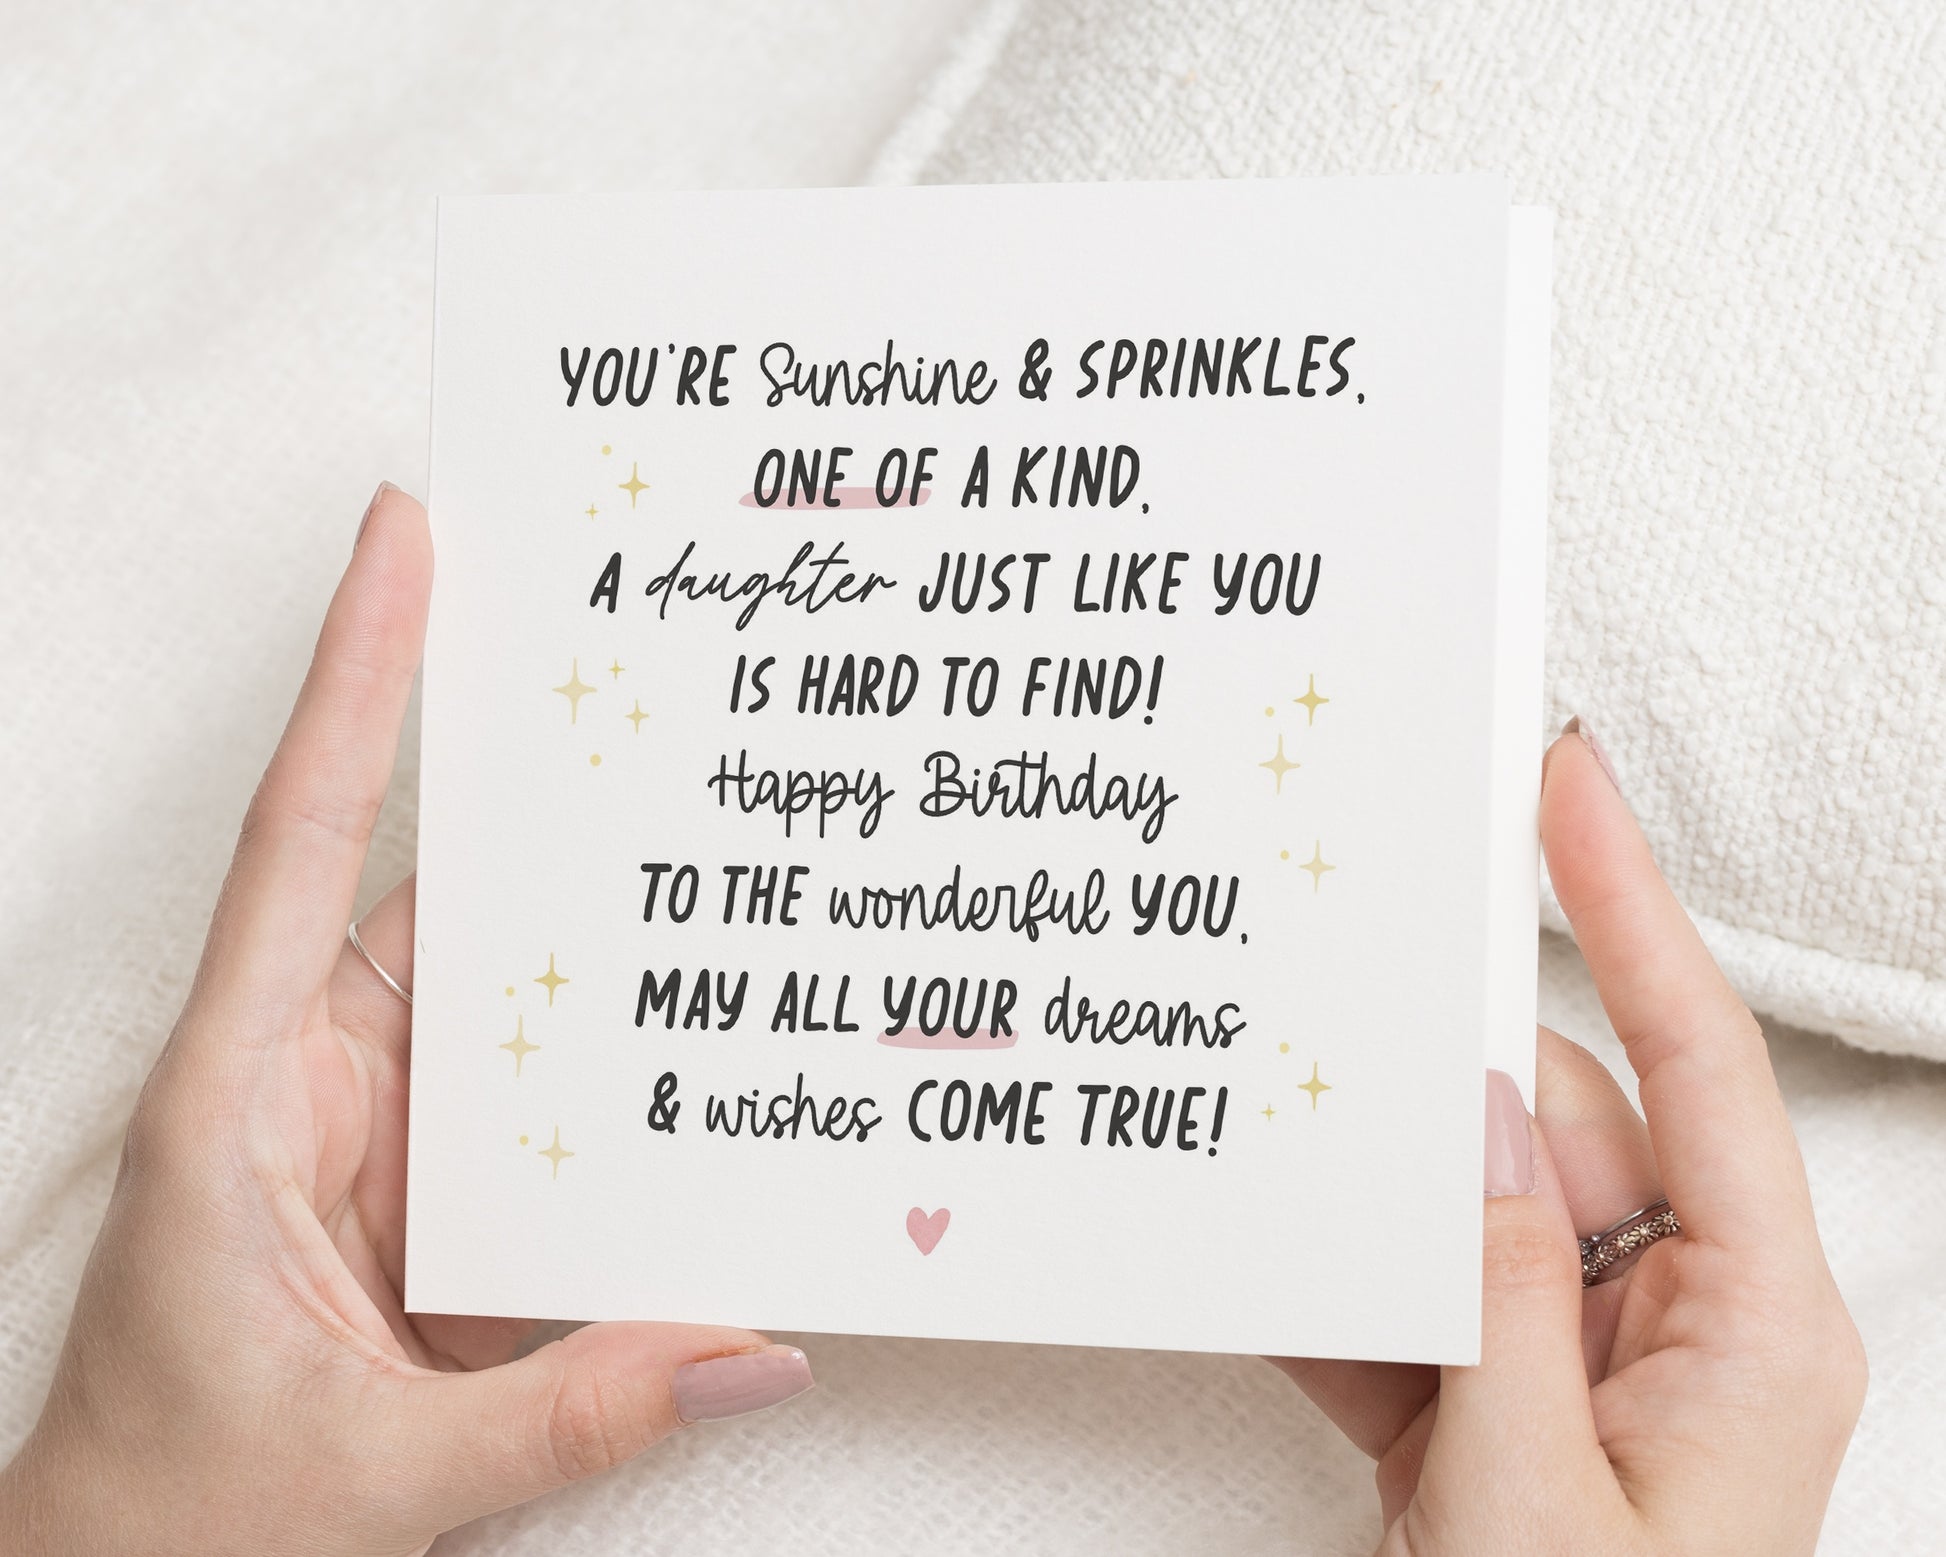 YOU'RE Sunshine & SPRINKLES,
ONE OF A KIND,
A daughter JUST LIKE YOU
IS HARD TO FIND!
Happy Birthday
TO THE wonderful YOU,
MAY ALL YOUR dreams
& wishes COME TRUE!